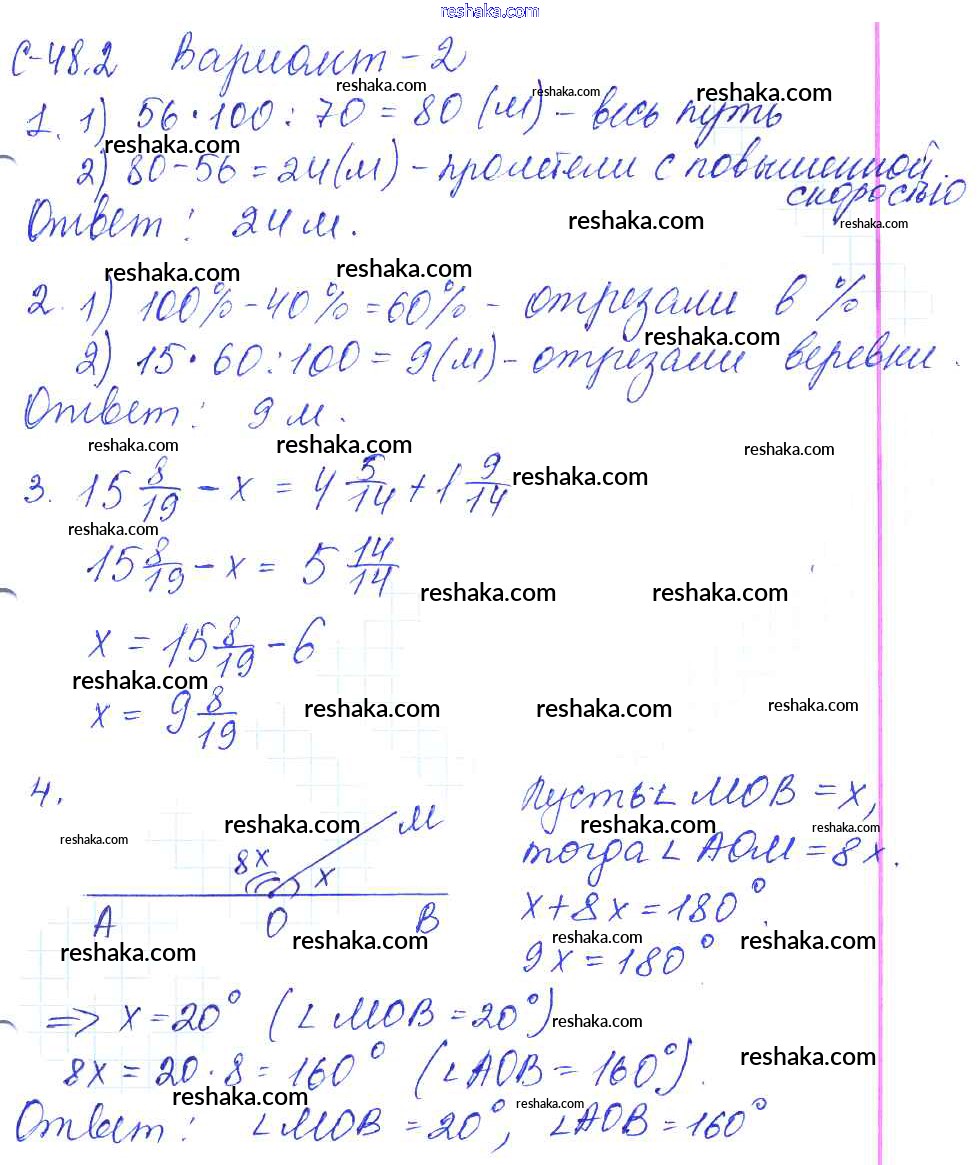 reshaka.com
С-48.2 Вариант - 2
reshaka.com
reshaka.com
reshaka.com
1. 1) 56 · 100 : 70 = 80 (м) - весь путь
reshaka.com
2) 80 - 56 = 24 (м) - пролетели с повышенной
скоростью
Ответ: 24 м.
reshaka.com
reshaka.com
reshaka.com
reshaka.com
2. 1) 100% - 40% = 60% - отрезали в %
reshaka.com
2) 15 · 60 : 100 = 9 (м) - отрезали веревки.
Ответ: 9 м.
reshaka.com
reshaka.com
reshaka.com
3. 15 8/19 - x = 4 5/14 + 1 9/14
reshaka.com
reshaka.com
15 8/19 - x = 5 14/14
reshaka.com
reshaka.com
x = 15 8/19 - 6
reshaka.com
x = 9 8/19
reshaka.com
reshaka.com
reshaka.com
4.
M
8x
x
A O B
reshaka.com
reshaka.com
Пусть ∠MOB = x,
reshaka.com
reshaka.com
тогда ∠AOM = 8x.
x + 8x = 180°.
9x = 180°
reshaka.com
reshaka.com
reshaka.com
reshaka.com
=> x = 20° (∠MOB = 20°)
reshaka.com
8x = 20 · 8 = 160° (∠AOB = 160°).
reshaka.com
reshaka.com
reshaka.com
Ответ: ∠MOB = 20°, ∠AOB = 160°